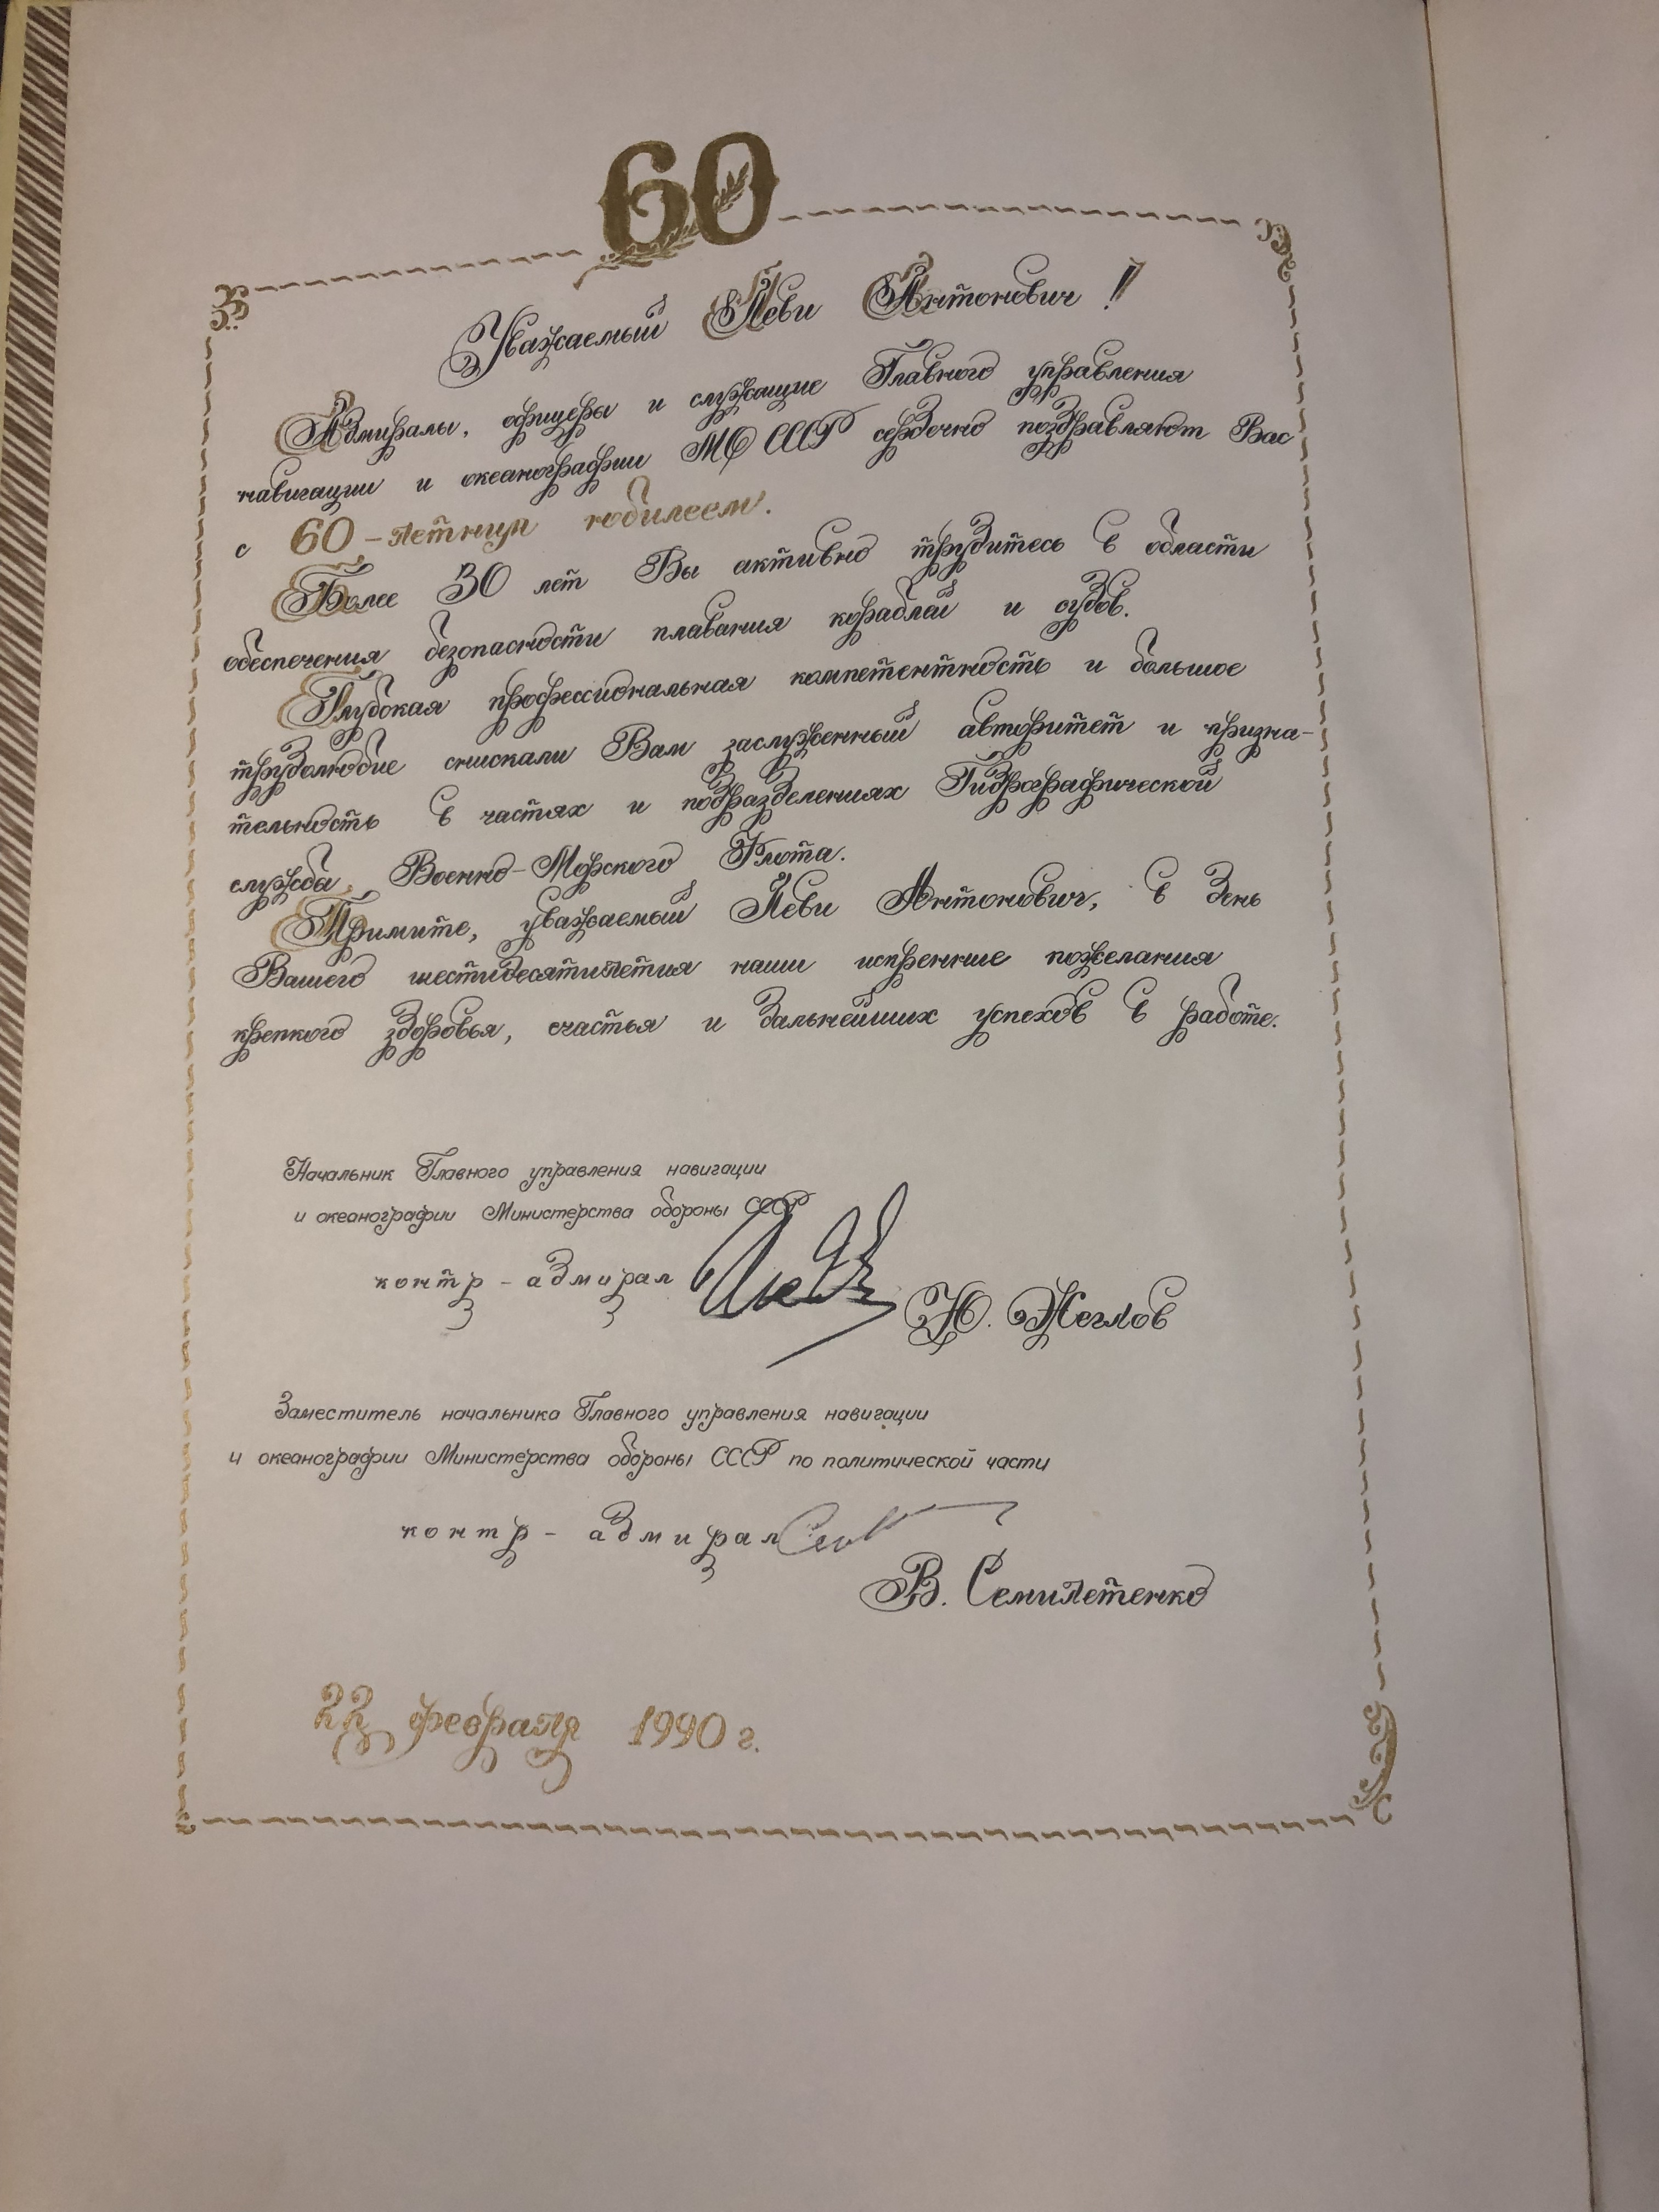 60
Уважаемый Леви Антонович!
Адмиралы, офицеры и служащие Главного управления
навигации и океанографии МО СССР сердечно поздравляют Вас
с 60-летним юбилеем.
Более 30 лет Вы активно трудитесь в области
обеспечения безопасности плавания кораблей и судов.
Глубокая профессиональная компетентность и большое
трудолюбие снискали Вам заслуженный авторитет и призна-
тельность в частях и подразделениях Гидрографической
службы Военно-Морского Флота.
Примите, уважаемый Леви Антонович, в день
Вашего шестидесятилетия наши искренние пожелания
крепкого здоровья, счастья и дальнейших успехов в работе.
Начальник Главного управления навигации
и океанографии Министерства обороны СССР
контр-адмирал
Ю. Жеглов
Заместитель начальника Главного управления навигации
и океанографии Министерства обороны СССР по политической части
контр-адмирал
В. Семилетенко
22 февраля 1990 г.